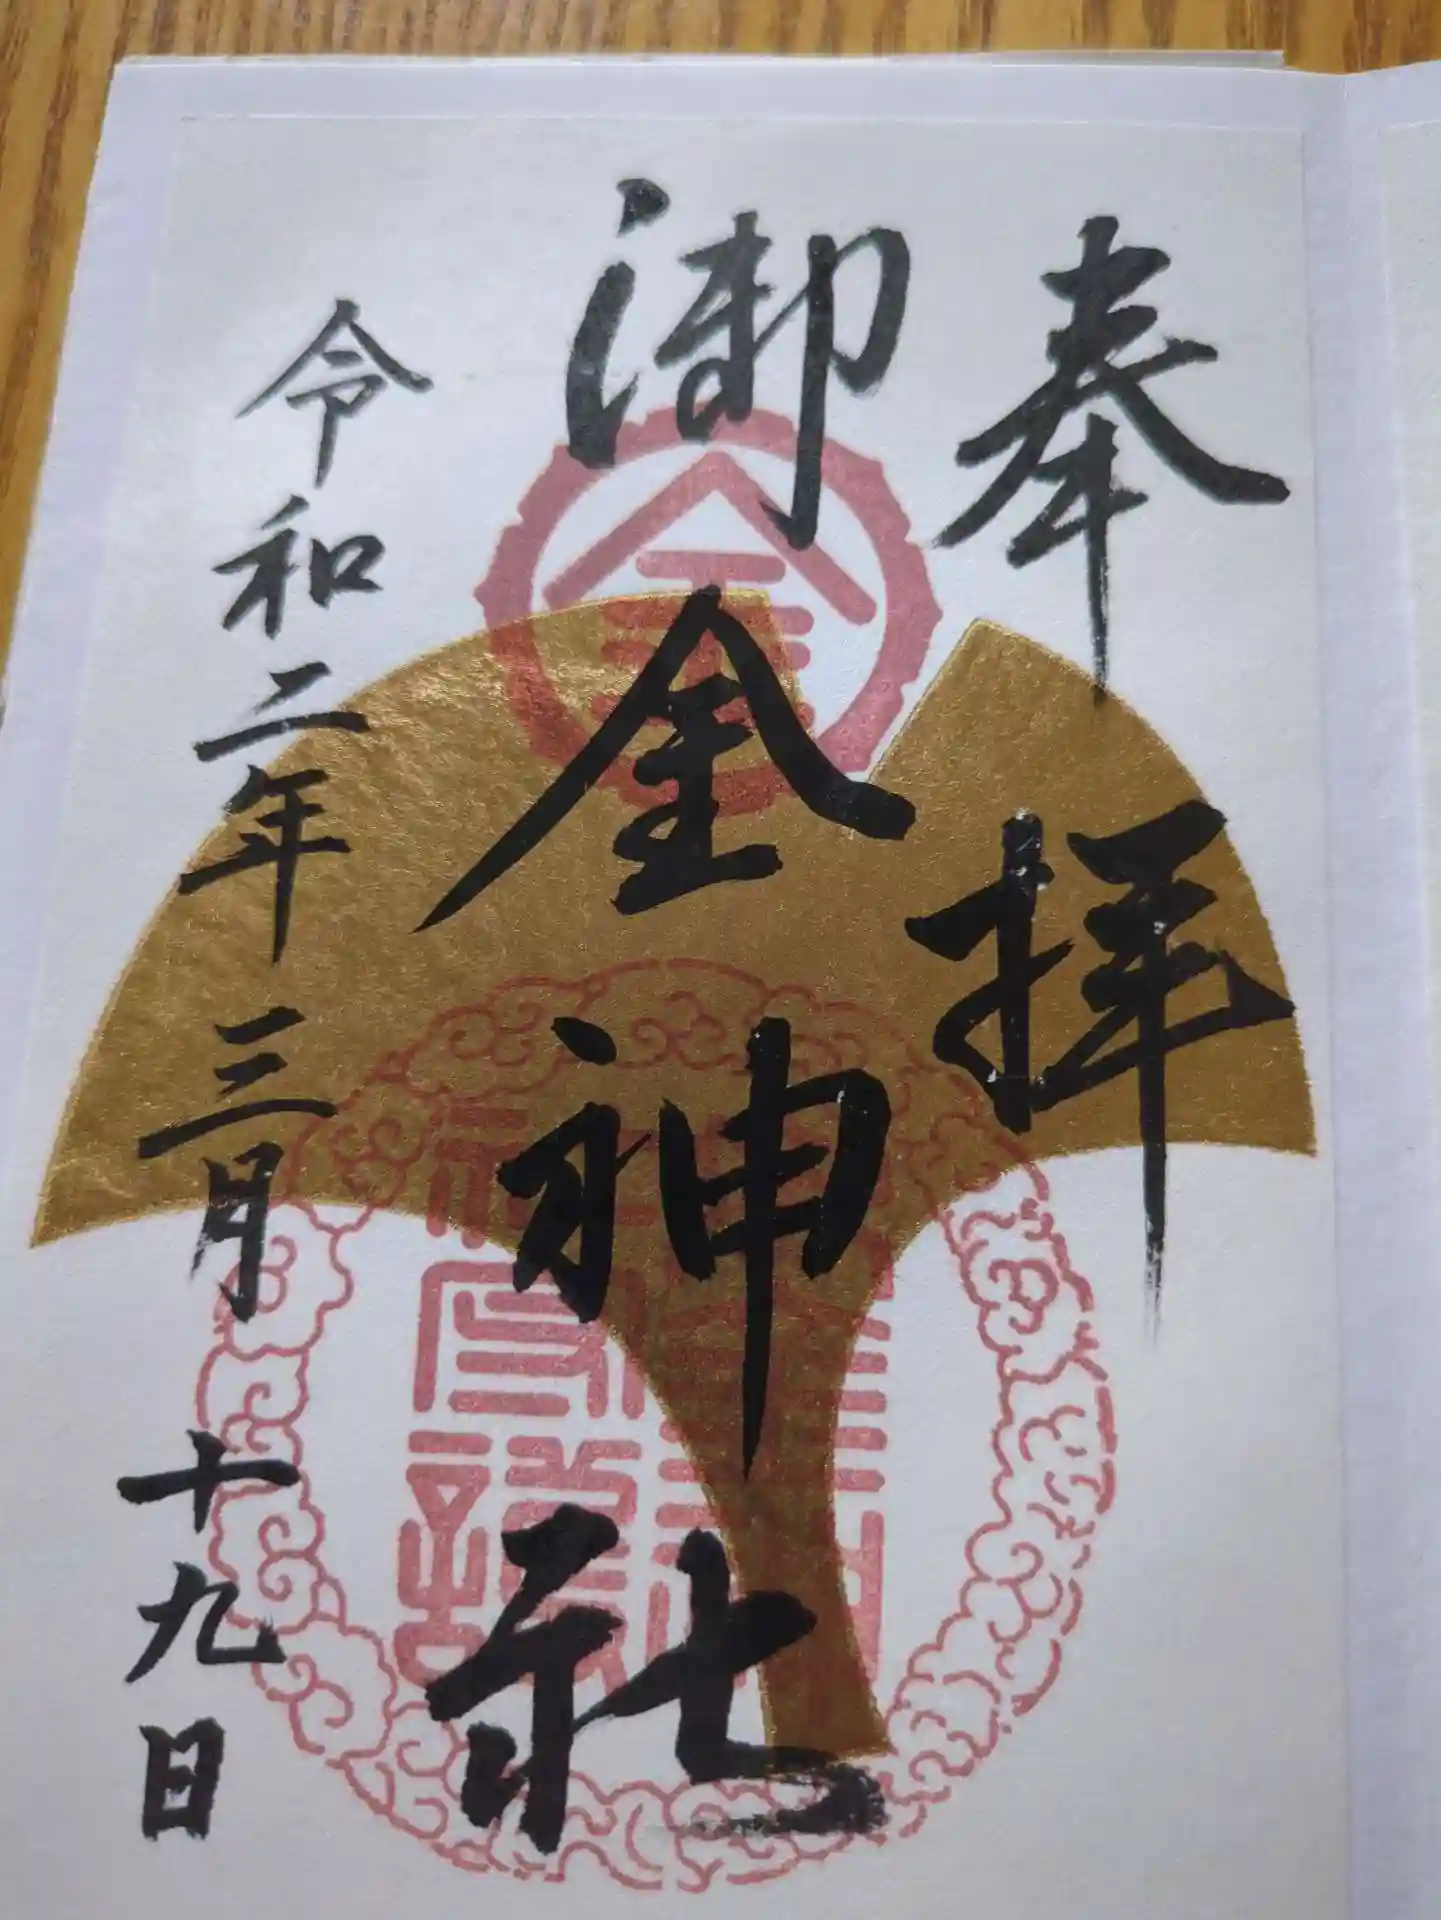 奉拝
御金神社
令和二年三月十九日
金